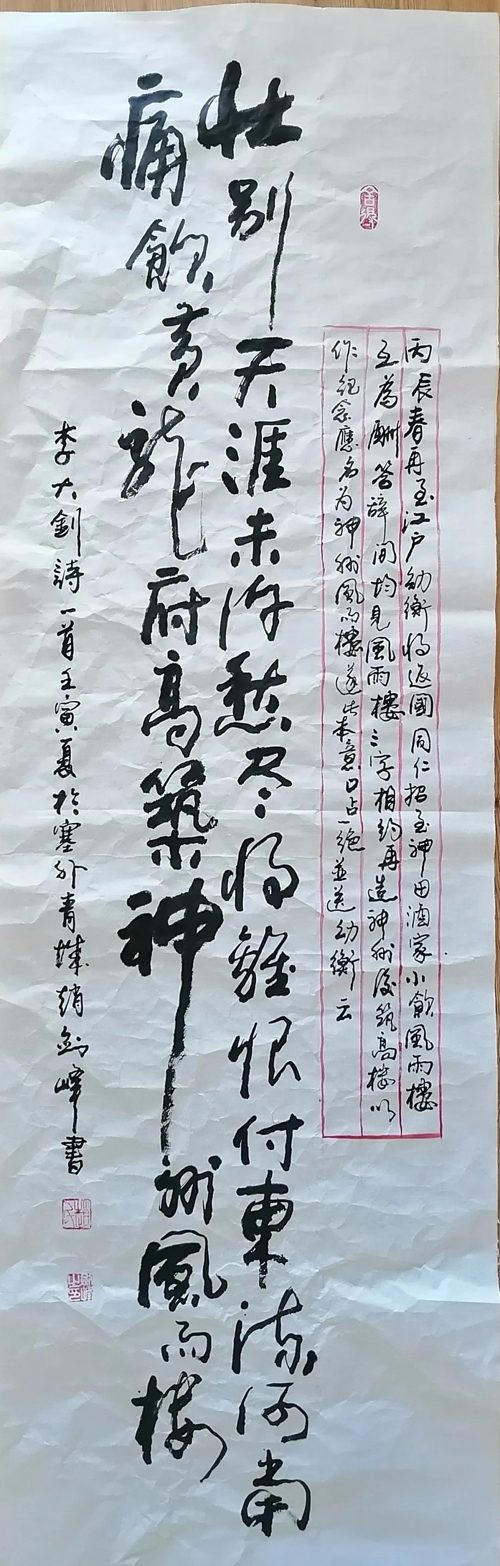 丙辰春再至江户幼衡将返國同仁招至神田酒家小飲風雨樓
互為酬答辞間均見風雨樓三字相約再造神州後筑高楼以
作纪念應名为神州風雨樓遂此本意口占一绝並送幼衡云
壮别天涯未许愁尽将離恨付東流何當
痛飲黄龍府高築神州風雨楼
李大釗詩一首壬寅夏於塞外青城趙劍峰書